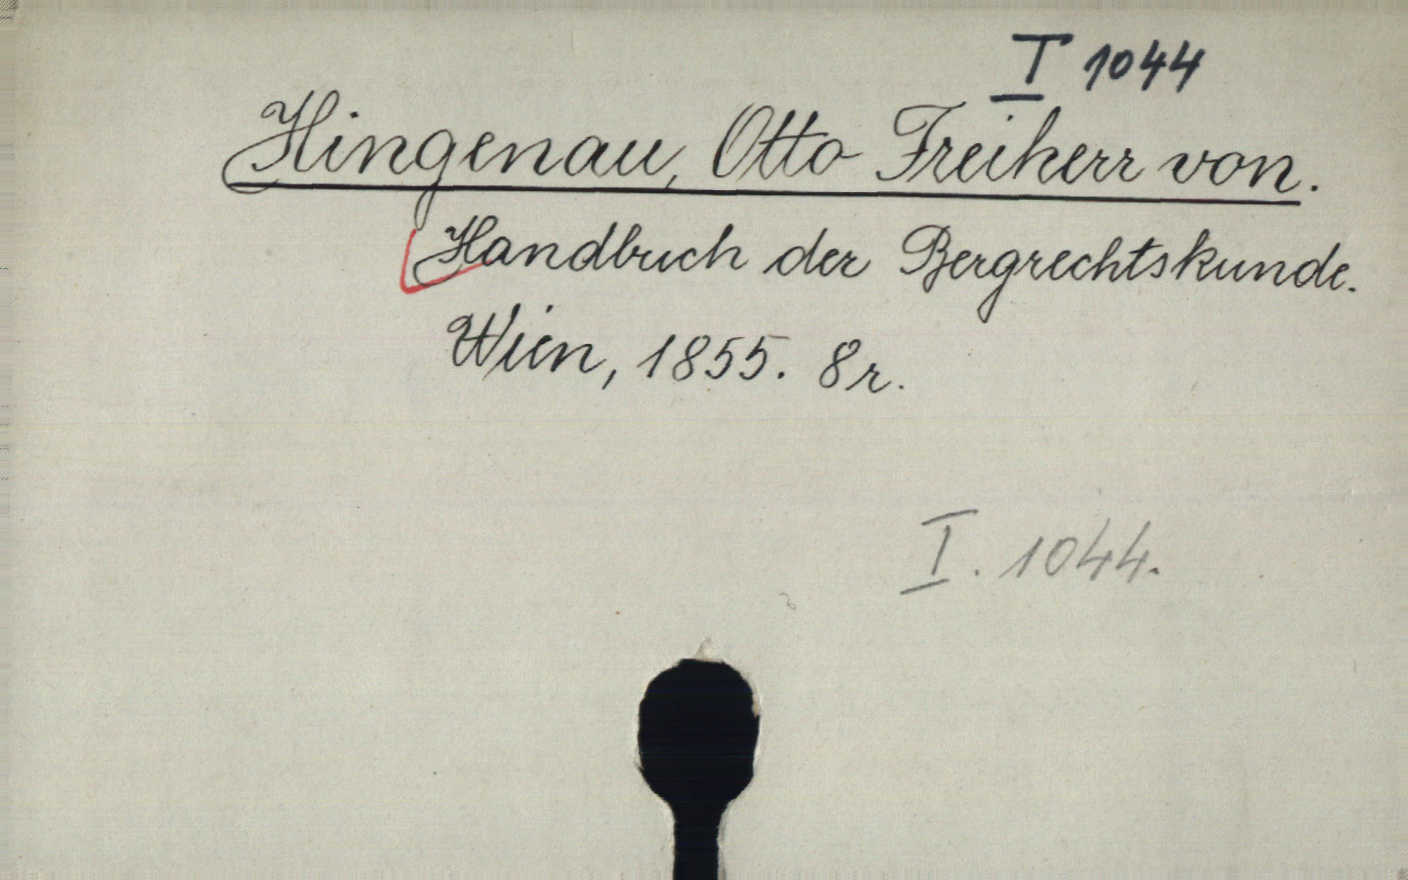 I 1044
Hingenau, Otto Freiherr von.
Handbuch der Bergrechtskunde.
Wien, 1855. 8r.
I. 1044.